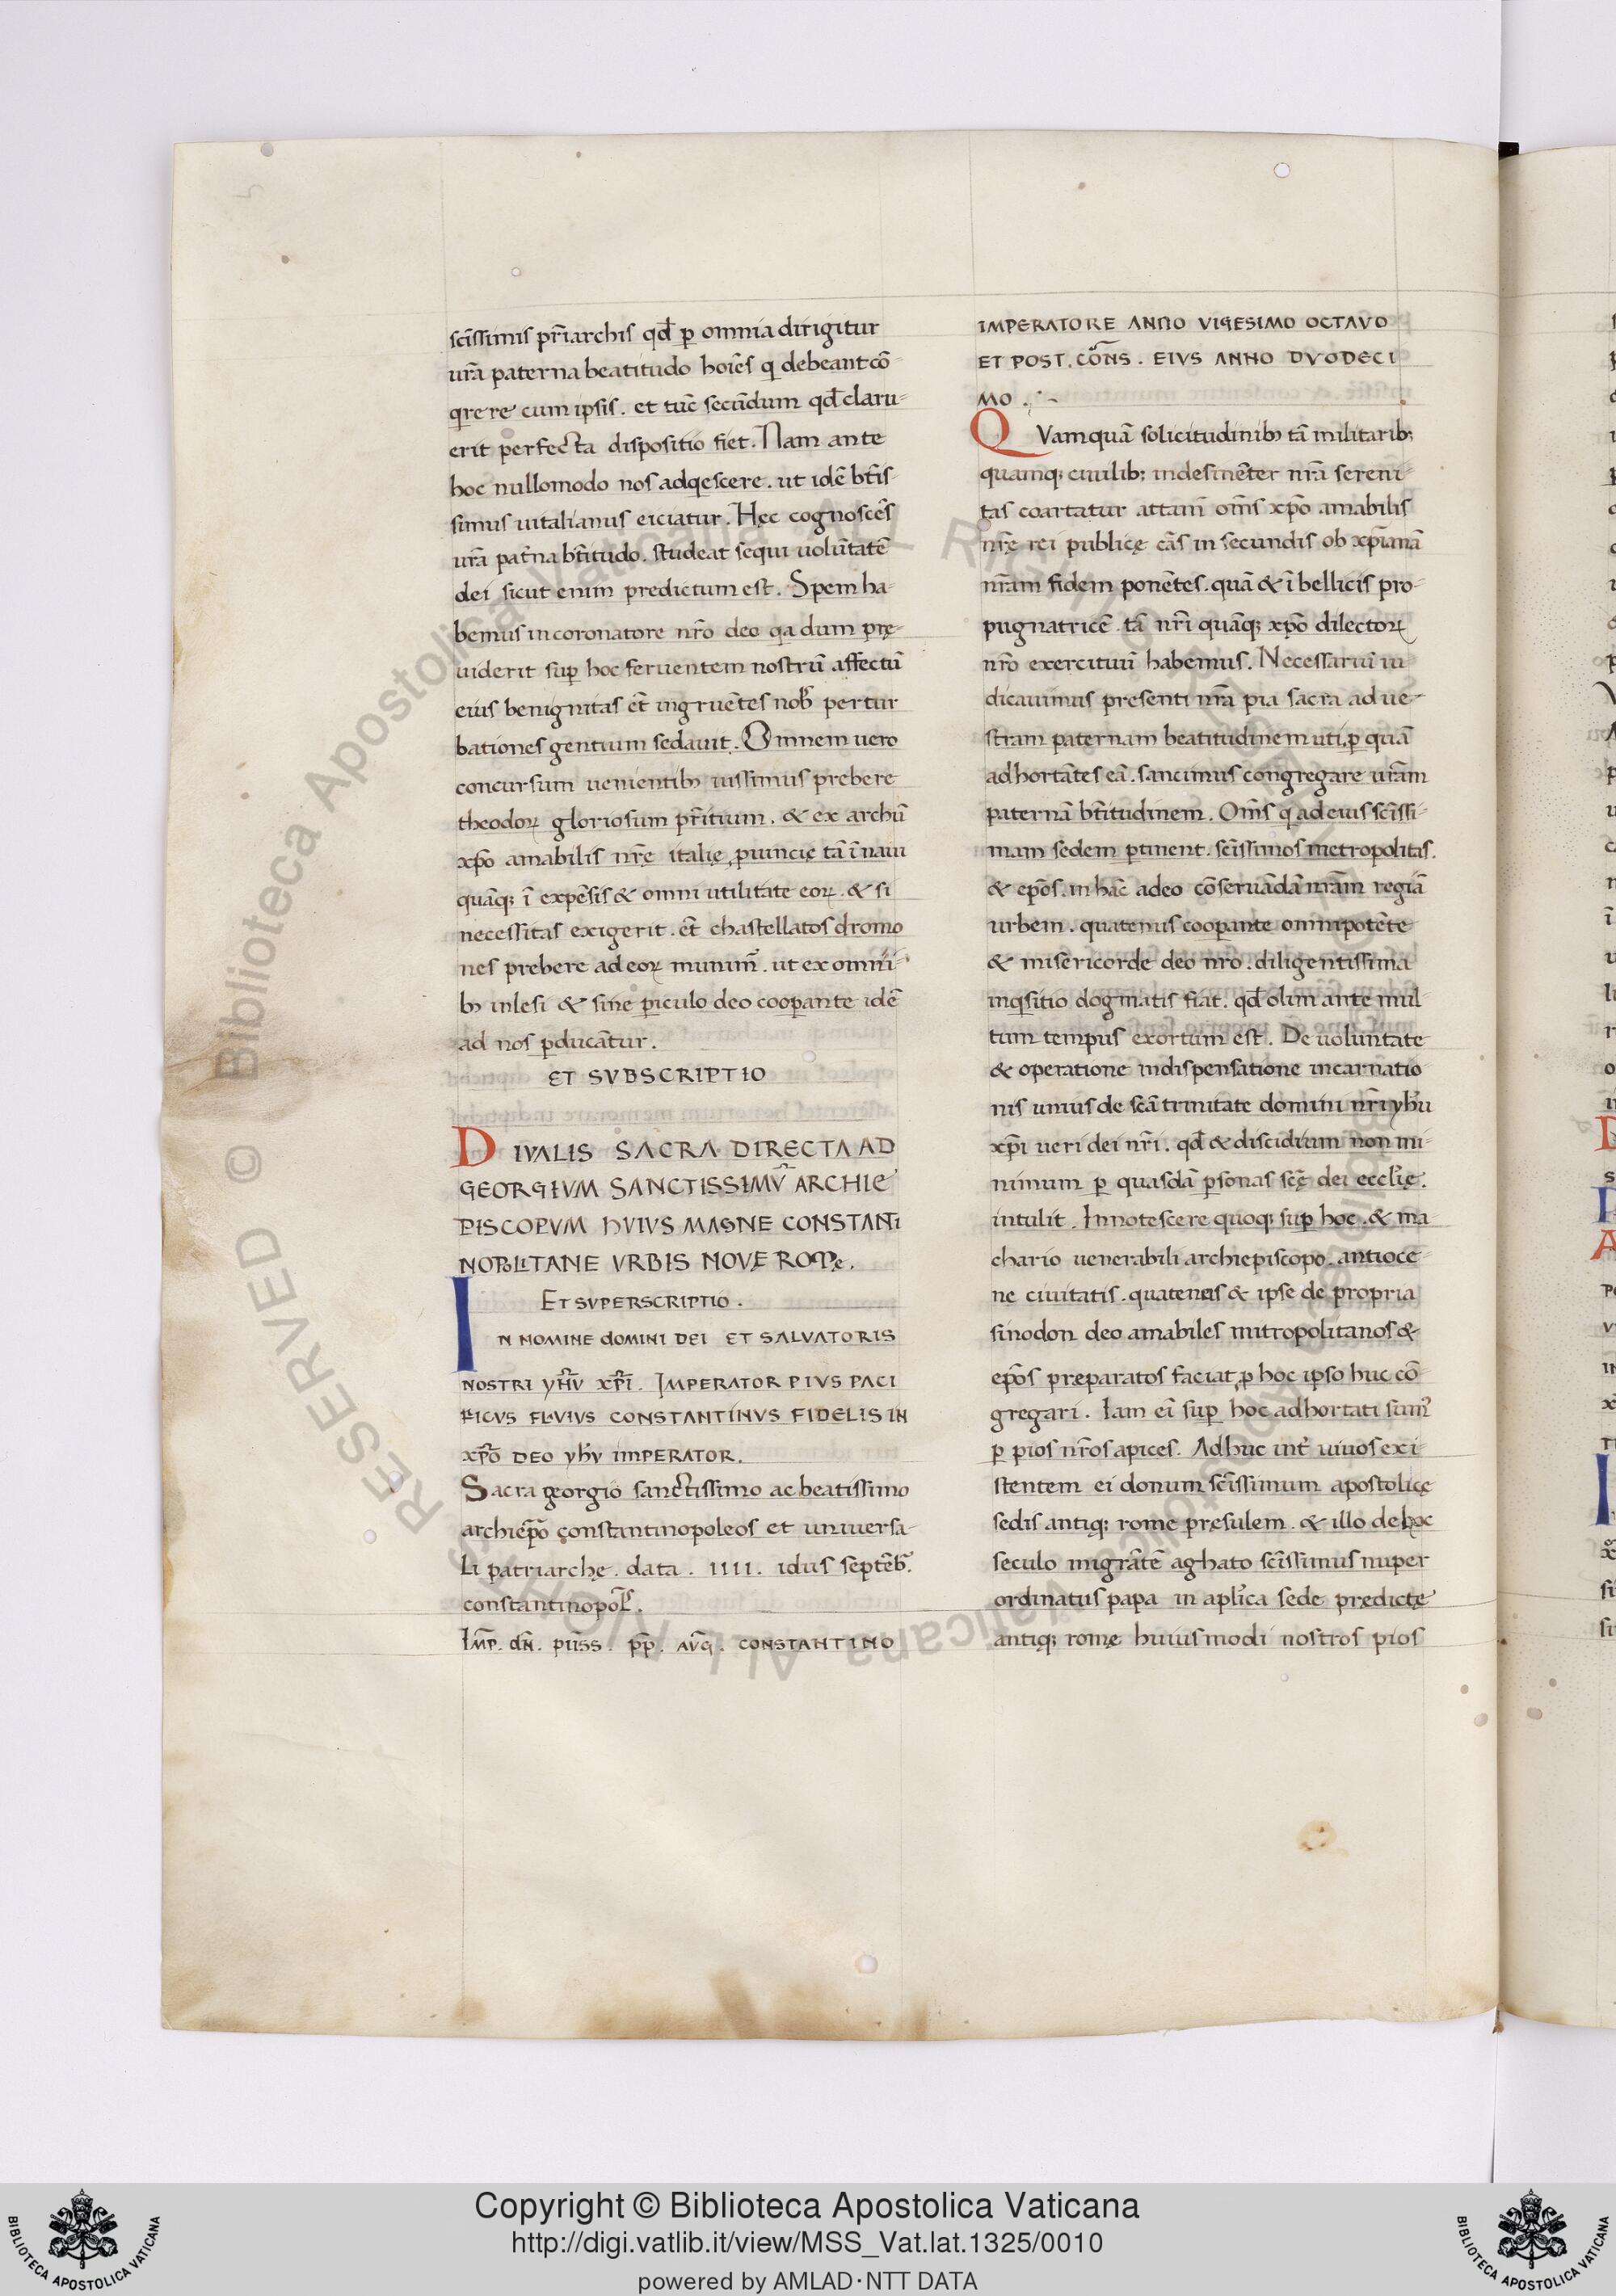 scīssimis pr̄iarchis qd̄ ꝑ omnia dirigitur
ur̄a paterna beatitudo hoīes q debeant cō-
qrere cum ipsis. et tūc secūdum qd̄ claru-
erit perfecta dispositio fiet. Nam ante
hoc nullomodo nos adqescere. ut idē bt̄is-
simus uitalianus eiciatur. Hęc cognoscēs
ur̄a pat̄na bt̄itudo. studeat sequi uolūtatē
dei sicut enim predictum est. Spem ha-
bemus in coronatore nr̄o deo qa dum prę-
uiderit suꝑ hoc feruentem nostrū affectū
eius benignitas et̄ ingruētes nob̄ pertur
bationes gentium sedauit. Omnem uero
concursum uenientibꝫ iussimus prebere
theodoꝝ gloriosum pr̄itium. & ex archū
xp̄o amabilis nr̄ę italię ꝓuincię tā ī naui
quāqꝫ ī expēsis & omni utilitate eoꝝ. & si
necessitas exigerit. et̄ chastellatos dromo
nes prebere ad eoꝝ munim̄. ut ex omni-
bꝫ inlesi & sine ꝑiculo deo cooꝑante idē
ad nos ꝑducātur.
ET SVBSCRIPTIO
DIVALIS SACRA DIRECTA AD
GEORGIVM SANCTISSIMV̄ ARCHIE
PISCOPVM HVIVS MAGNE CONSTANTI
NOPOLITANE VRBIS NOVĘ ROMę.
ET SVPERSCRIPTIO.
IN NOMINE DOMINI DEI ET SALVATORIS
NOSTRI YHV̄ XPĪ. IMPERATOR PIVS PACI
FICVS FLAVIVS CONSTANTINVS FIDELIS IN
XPŌ DEO YHV̄ IMPERATOR.
Sacra georgio sanctissimo ac beatissimo
archiep̄o constantinopoleos et uniuersa-
li patriarchę. data. IIII. idus septēb̄.
constantinopol̄.
IMP̄. DN̄. PIISS. PP̄. AVḠ. CONSTANTINO
IMPERATORE ANNO VIGESIMO OCTAVO
ET POST. CONS̄. EIVS ANNO DVODECI
MO.
QVamquā solicitudinibꝫ tā militaribꝫ
quamqꝫ ciuilibꝫ indesinēter nr̄a sereni-
tas coartatur attam̄ om̄s xp̄o amabilis
nr̄ę rei publicę cās in secundis ob xp̄ianā
nr̄am fidem ponētes. quā & ī bellicis pro-
pugnatricē. tā nr̄i quāqꝫ xp̄o dilectoꝝ
nr̄o exercituū habemus. Necessariū iu
dicauimus presenti nr̄a pia sacra ad ue-
stram paternam beatitudinem uti. ꝑ quā
adhortātes eā. sancimus congregare ur̄am
paternā bt̄itudinem. Om̄s q ad eius scīssi-
mam sedem ꝑtinent. scīssimos metropolitas.
& ep̄os. in hāc a deo cōseruādā nr̄am regiā
urbem. quatenus cooꝑante omnipotēte
& misericorde deo nr̄o. diligentissima
inqsitio dogmatis fiat. qd̄ olim ante mul-
tum tempus exortum est. De uoluntate
& operatione in dispensatione incarnatio-
nis unius de scā trinitate domini nr̄i yhū
xp̄i ueri dei nr̄i. qd̄ & discidium non mi-
nimum ꝑ quasdā ꝑsonas scę̄ dei eccl̄ię.
intulit. Innotescere quoqꝫ suꝑ hoc. & ma-
chario uenerabili archiepiscopo. antioce-
ne ciuitatis. quatenus & ipse de propria
sinodon deo amabiles mitropolitanos &
ep̄os pręparatos faciat, ꝑ hoc ipso huc cō-
gregari. Iam ei suꝑ hoc adhortati sum᷒
ꝑ pios nr̄os apices. Adhuc int̄ uiuos exi-
stentem ei donum scīssimum apostolicę
sedis antiqꝫ rome pręsulem. & illo de hoc
seculo migrātē aghato scīssimus nuper
ordinatus papa in apl̄ica sede prędictę
antiqꝫ romę huiusmodi nostros pios
Copyright © Biblioteca Apostolica Vaticana
http://digi.vatlib.it/view/MSS_Vat.lat.1325/0010
powered by AMLAD·NTT DATA
BIBLIOTECA APOSTOLICA VATICANA
BIBLIOTECA APOSTOLICA VATICANA